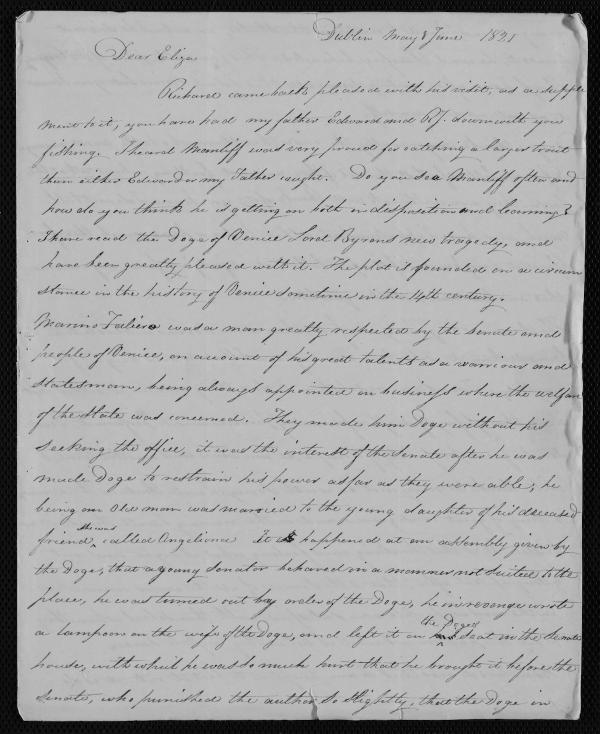 Dublin May & June 1821
Dear Eliza
Richard came back pleased with his visit, as a supple
ment to it, you have had my father Edward and RJ. down with you
fishing. I heard Manliff was very proud for catching a larger trout
then either Edward or my Father caught. Do you see Manliff often and
how do you think he is getting on both in disposition and learning?
I have read the Doge of Venice Lord Byrons new tragedy, and
have been greatly pleased with it. The plot is founded on a circum
stance in the history of Venice sometime in the 14th century.
Marino Faliero was a man greatly respected by the Senate and
people of Venice, on account of his great talents as a warrior and
statesman, being always appointed on business where the welfare
of the state was concerned. They made him Doge without his
seeking the office, it was the interest of the Senate after he was
made Doge to restrain his power as far as they were able, he
being an Old man was married to the young daughter of his deceased
friend, she was called Angelina It happened at an assembly given by
the Doge, that a young senator behaved in a manner not suited to the
place, he was turned out by order of the Doge, he in revenge wrote
a lampoon on the wife of the Doge, and left it on the Doges seat in the Senate
house, with which he was so much hurt that he brought it before the
Senate, who punished the author so slightly, that the Doge in